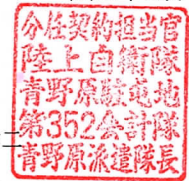 分任契約担当官
陸上自衛隊
青野原駐屯地
第352会計隊
青野原派遣隊長